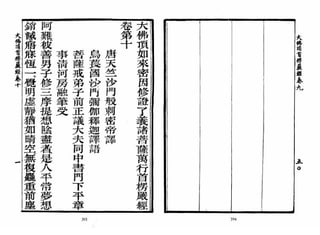 大佛頂首楞嚴經卷九
五〇
大佛頂如來密因修證了義諸菩薩萬行首楞嚴經
卷第十
唐天竺沙門般剌密帝譯
烏萇國沙門彌伽釋迦譯語
菩薩戒弟子前正議大夫同中書門下平章
事清河房融筆受
阿難彼善男子修三摩提想陰盡者是人平常夢想
銷滅寤寐恆一覺明虛靜猶如晴空無復麤重前塵
大佛頂首楞嚴經卷十
一